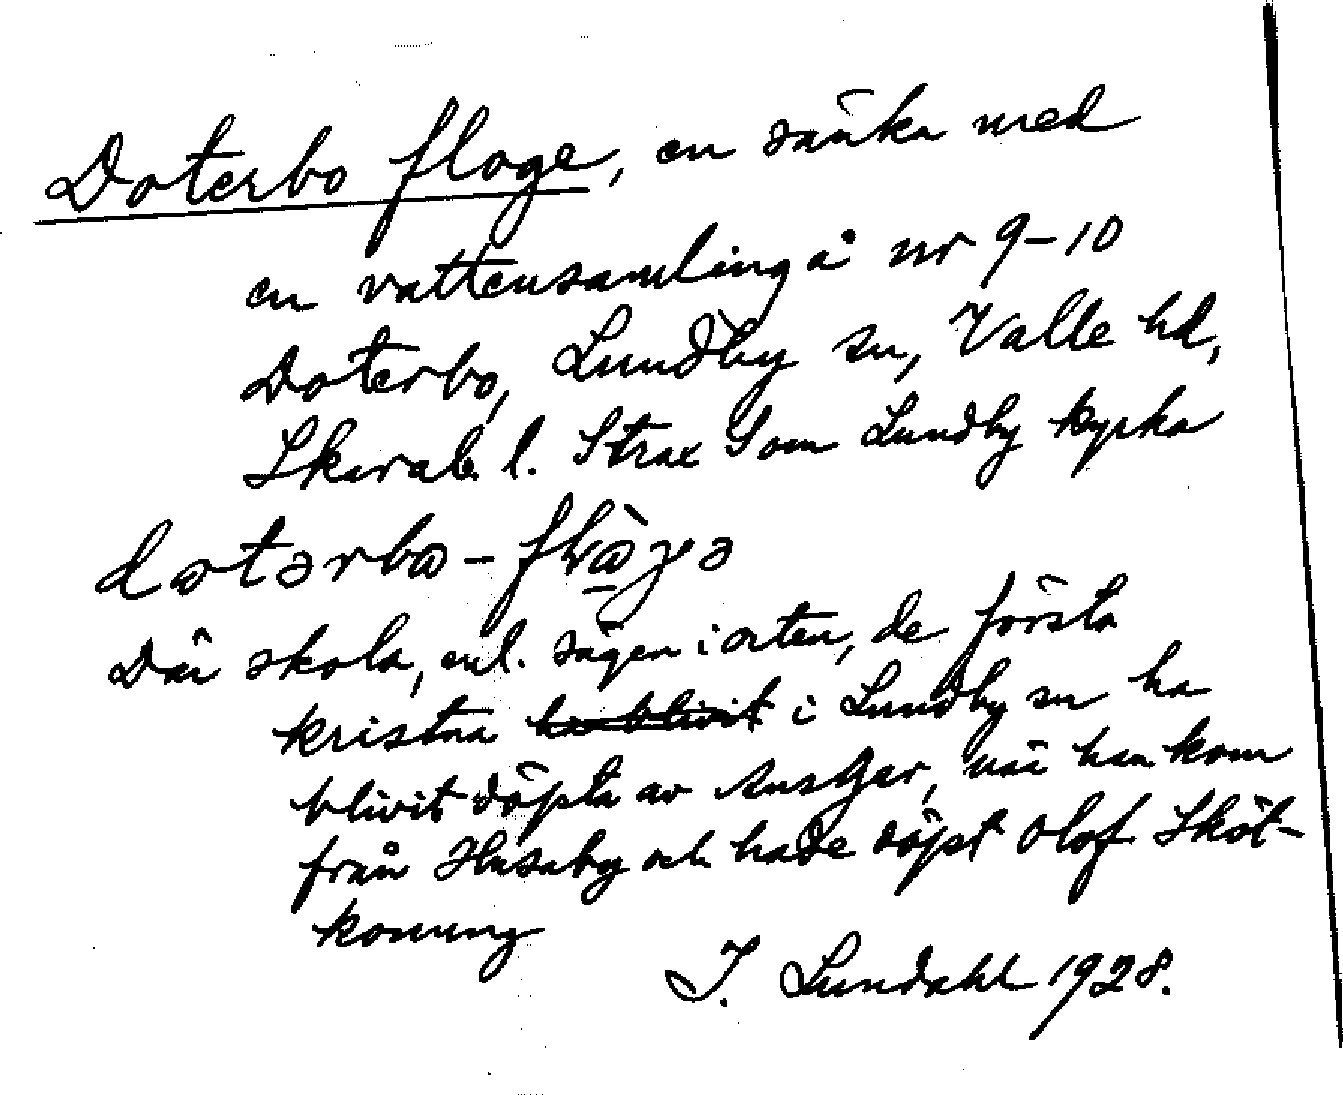 Doterbo floge, en sänka med
en vattensamling å nr 9-10
Doterbo, Lundby sn, Valle hd,
Skarab. l. Strax S om Lundby kyrka
Där skola, enl. sägen i orten, de första
kristna ha blivit i Lundby sn ha
blivit döpta av Ansgar, när han kom
från Husaby och hade döpt Olof Sköt-
konung
I. Lundahl 1928.